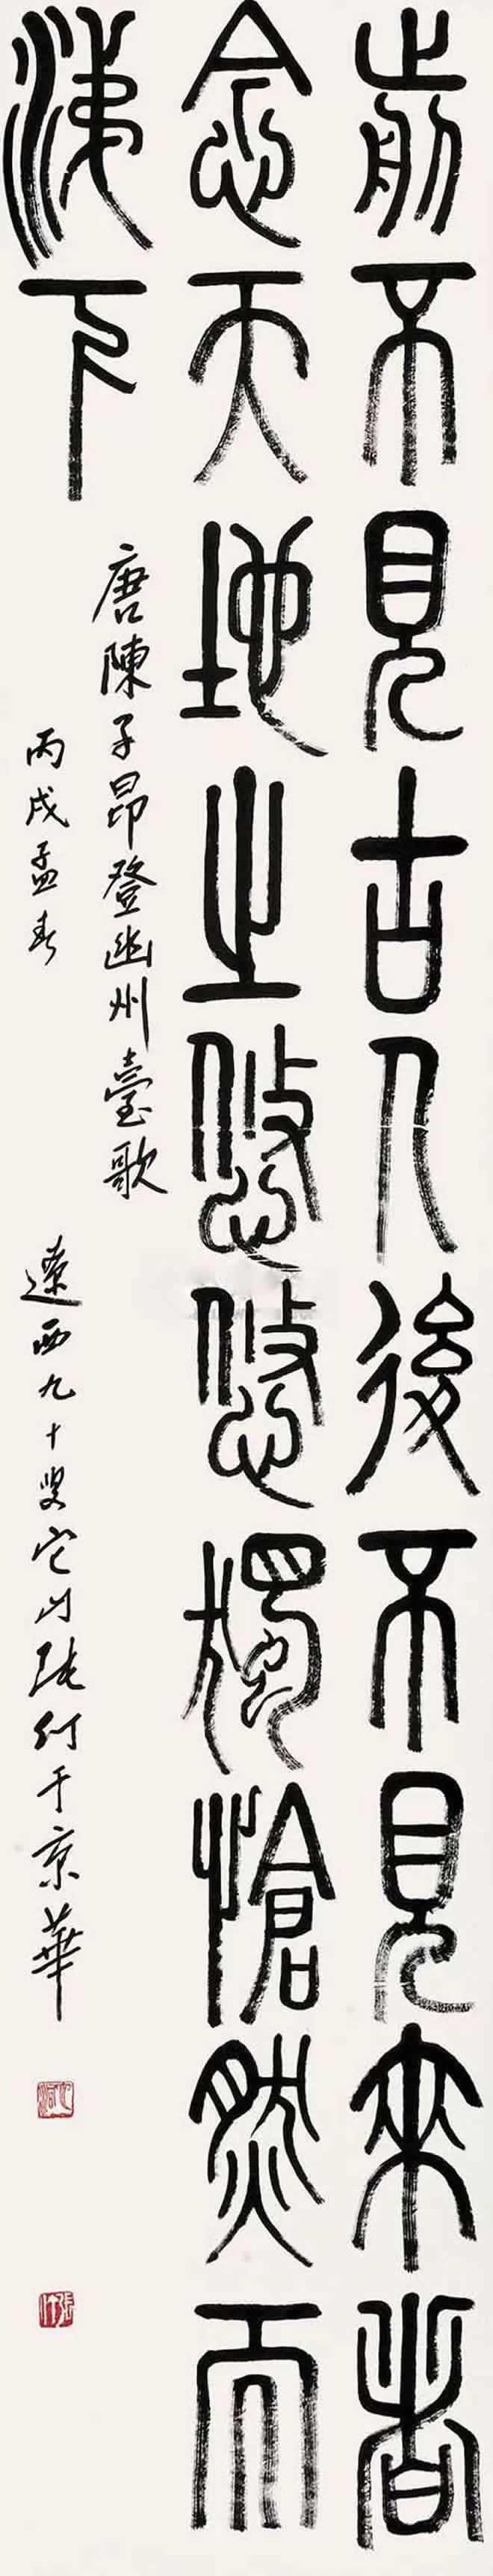 前不見古人後不見來者
念天地之悠悠獨愴然而
涕下
唐陳子昂登幽州臺歌
丙戌孟春
遼西九十叟它山張仃于京華
它山
張仃